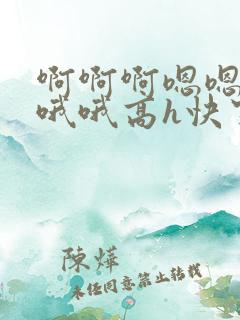 啊啊啊嗯嗯
哦哦高h快
陈烨
未经同意禁止转载